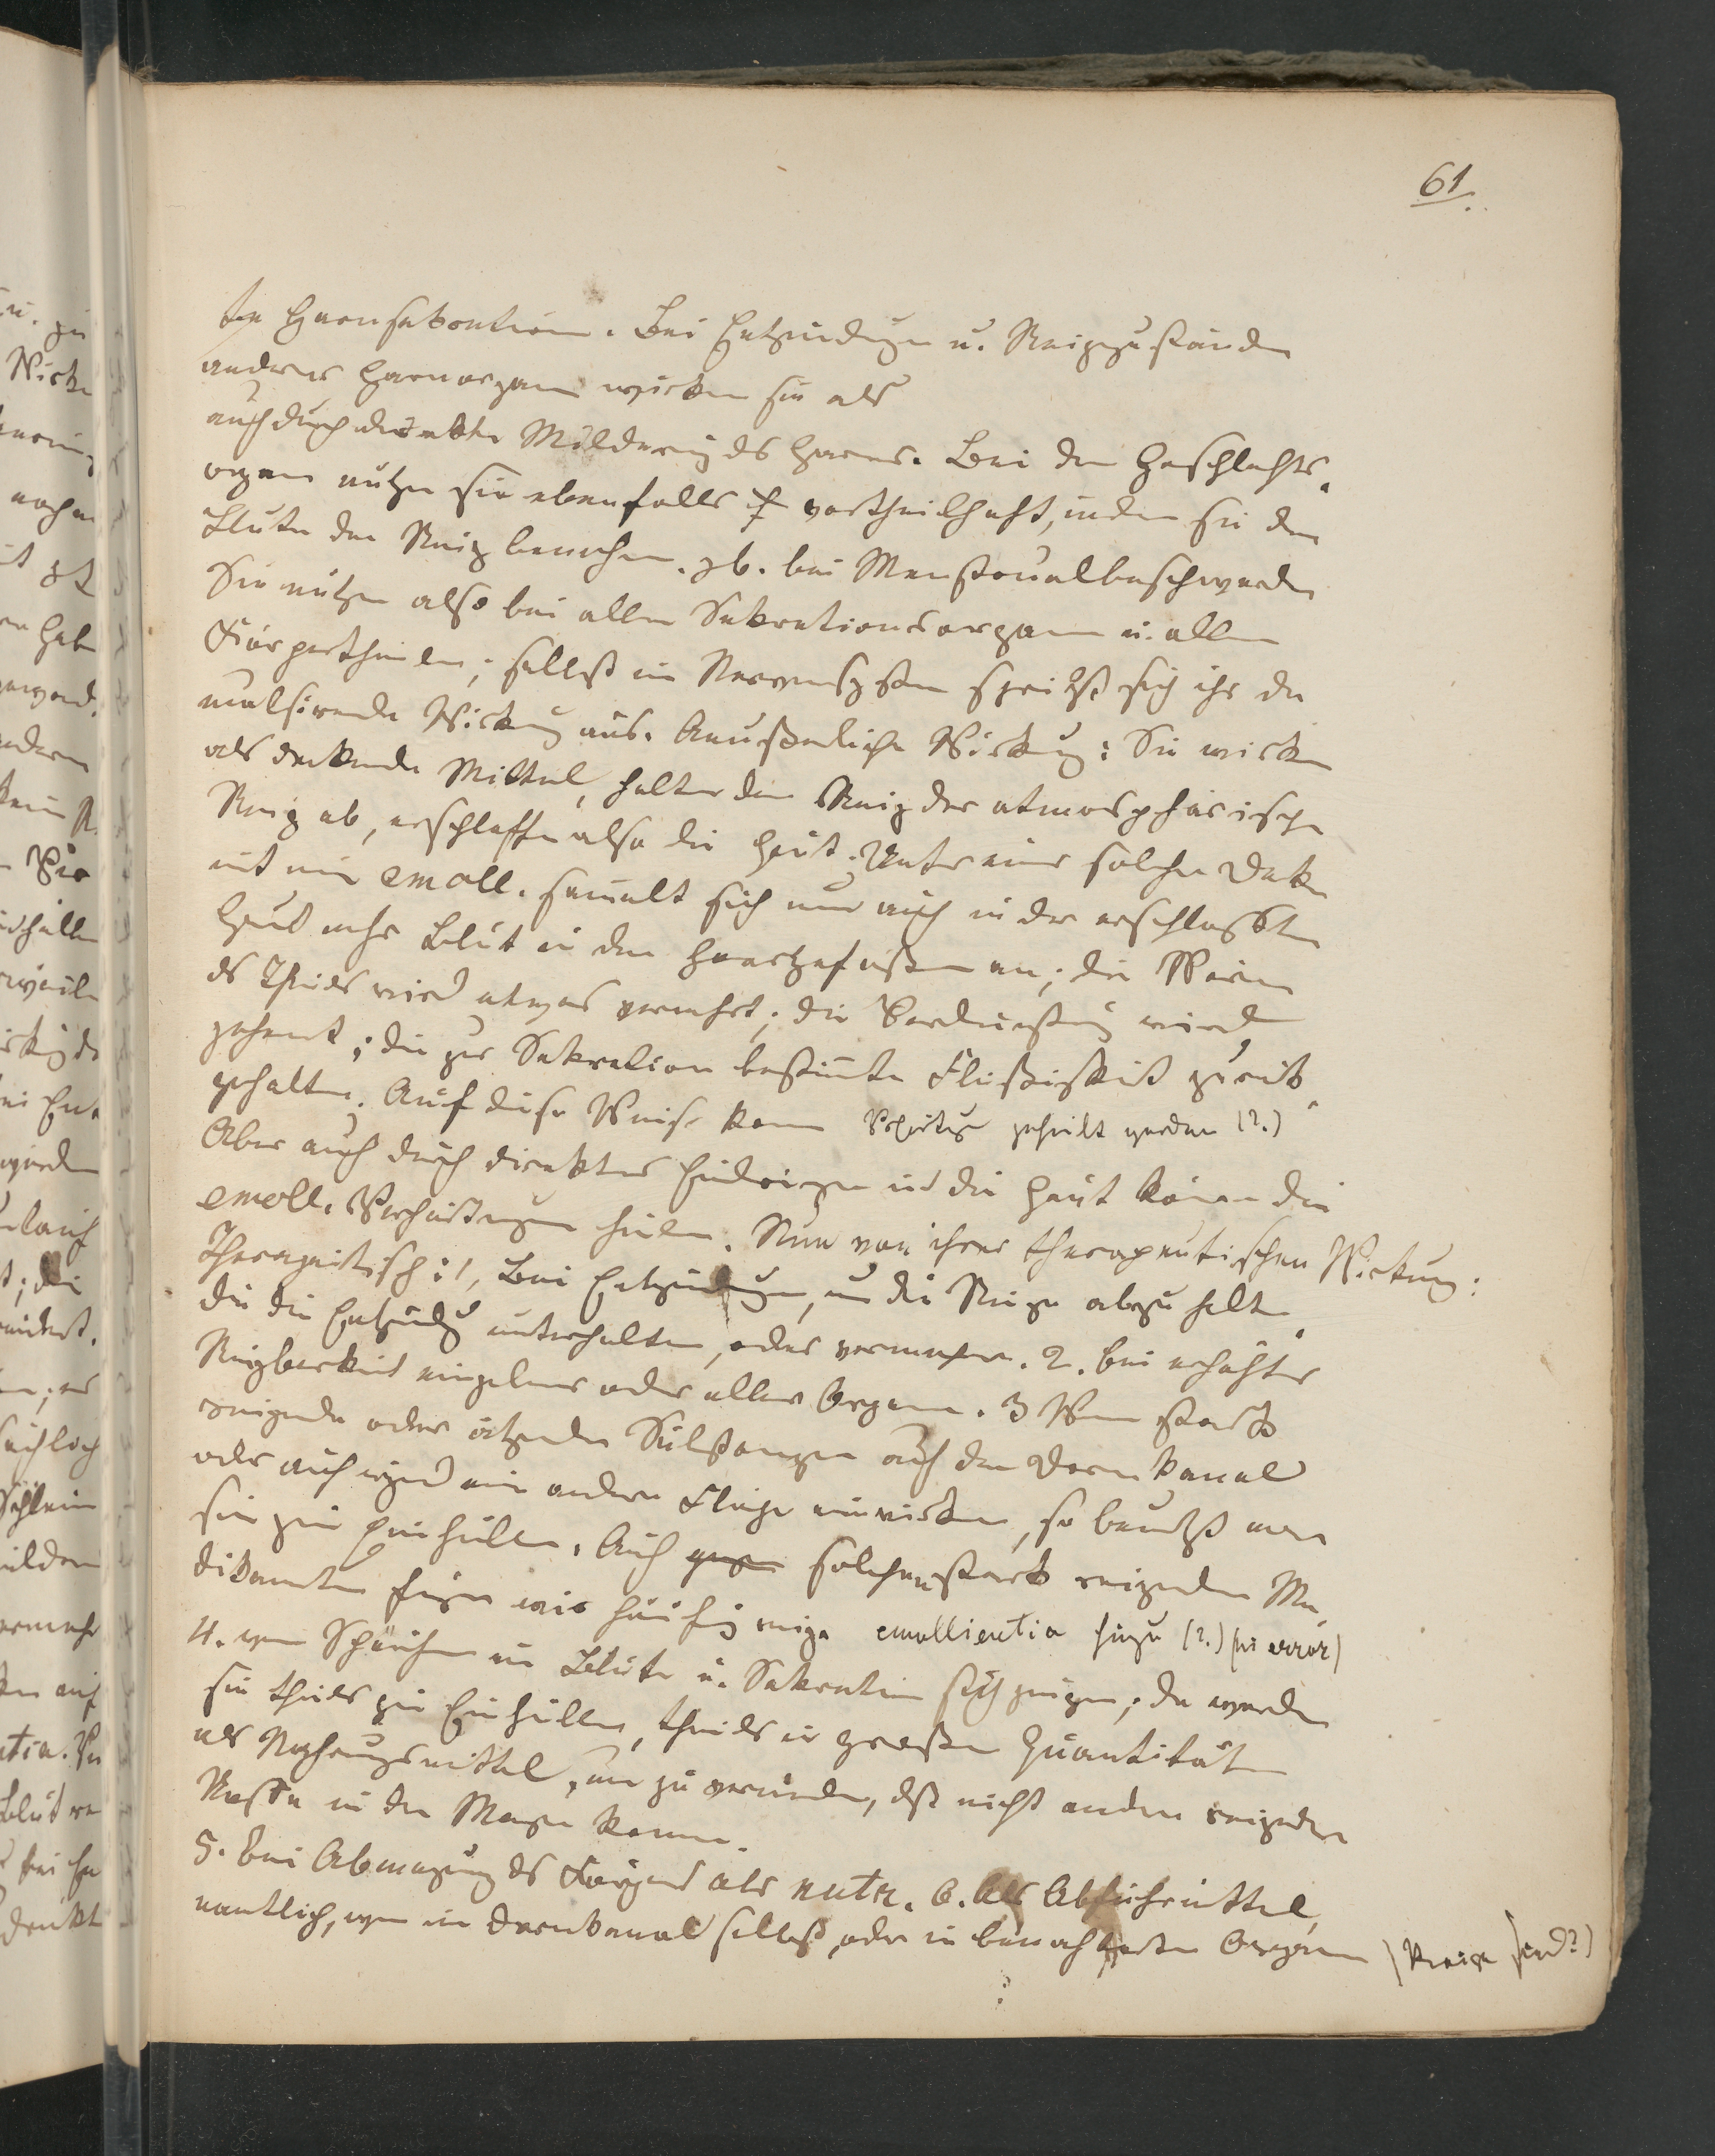 61.
te Harnsekretion. Bei Entzündungen u. Reizzuständen
anderer Harnorgane wirken sie als
auch durch direkte Milderung des Harns. Bei den Geschlechts-
organen nützen sie ebenfalls vortheilhaft, indem sie dem
Blute den Reiz benehmen, z.b. bei Menstrualbeschwerden
Sie nützen also bei allen Sekretionsorganen u. allen
Körpertheilen; selbst im Nervensystem spricht sich ihre de
mulsirende Wirkung aus. Aeußerliche Wirkung: Sie wirken
als deckende Mittel, halten den Reiz der atmosphärischen
Reiz ab, erschlaffen also die Haut. Unter einer solchen Decke
mit emoll. sammelt sich nun auch in der erschlafften
Haut mehr Blut in den Haargefäßen an; die Wärme
des Theils wird etwas vermehrt; die Verdunstung wird
gehemt; die zur Sekretion bestimte Flüßigkeit zurük
gehalten. Auf diese Weise kann geheilt werden (?.)
Aber auch durch direktes Eindringen in die Haut könen die
emoll. Verhärtungen heilen. Nun von ihrer therapeutischen Wirkung:
Therapeutisch: 1, Bei Entzündungen, um die Reize abzuhalten
die die Entzündg unterhalten, oder vermehren. 2. bei erhöhter
Reizbarkeit einzelner oder aller Organe. 3 Wenn stark
reizende oder ätzende Substanzen auf den Darmkanal
oder auf irgend eine andere Fläche einwirken, so benutzt man
sie zum Einhüllen. Auch gegen solchen stark reizenden Me-
dikamenten fügen wir häufig einige emollientia hinzu (?.) (ni error)
4. wenn Schärfen im Blute u. Sekretion sich zeigen; da werden
sie theils zu Einhüllen, theils in großer Quantität
als Nahrungsmittel, um zu vermeiden, dß nicht andere reizendere
Stoffe in den Magen komme.
5. bei Abmagrung des Körpers als nutr. 6. Als Abführmittel,
namtlich, wenn im Darmkanal selbst, oder in benachbarten Organen (Kreise sind?)
?